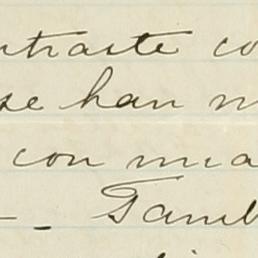 ntraste co
se han m
con una
- - Tamb